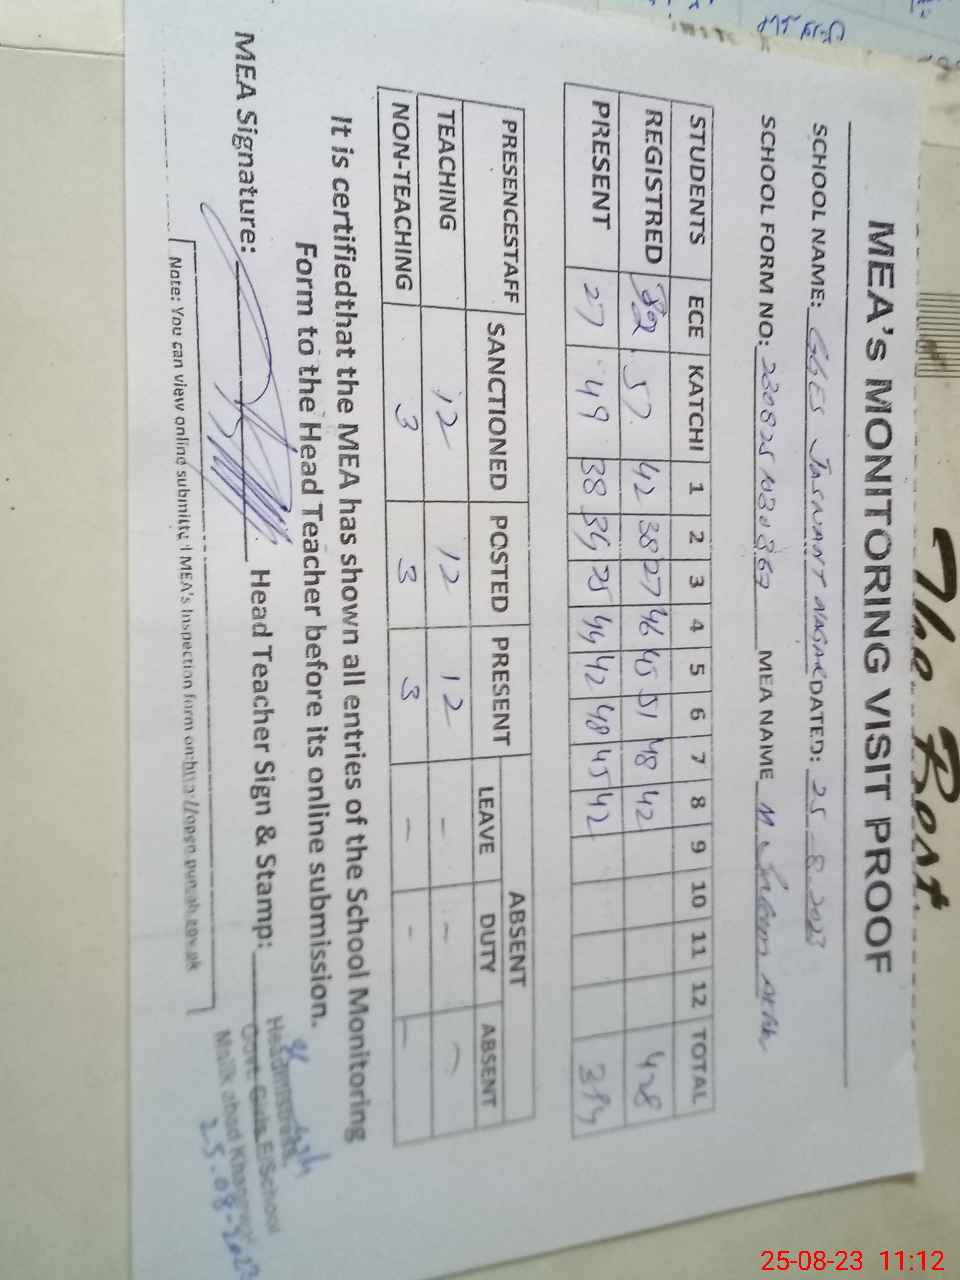 The Best
MEA's MONITORING VISIT PROOF
SCHOOL NAME: GGES JASWANT NAGAR DATED: 25-8-2023
SCHOOL FORM NO: MEA NAME M.
STUDENTS ECE KATCHI 1 2 3 4 5 6 7 8 9 10 11 12 TOTAL
REGISTRED 32 57 42 38 27 46 45 51 48 42 428
PRESENT 27 49 38 34 25 44 42 48 45 42 394
PRESENCESTAFF SANCTIONED POSTED PRESENT ABSENT
LEAVE DUTY ABSENT
TEACHING 12 12 12 - - -
NON-TEACHING 3 3 3 - - -
It is certifiedthat the MEA has shown all entries of the School Monitoring
Form to the Head Teacher before its online submission.
MEA Signature: Head Teacher Sign & Stamp:
Headmistress
Govt. Girls E/School
25-08-2023
Note: You can view online submitted MEA's Inspection form on:http://open.punjab.gov.pk
25-08-23 11:12